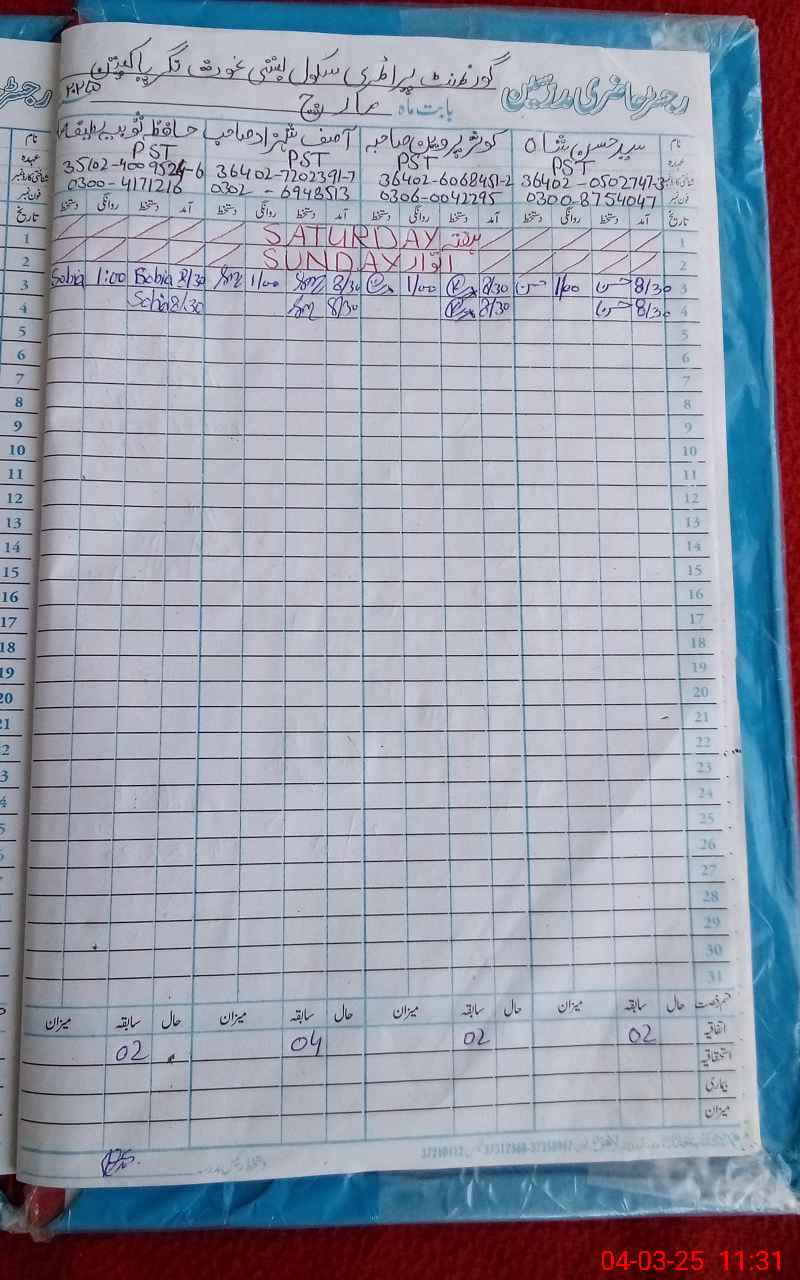 رجسٹر حاضری مدرسین گورنمنٹ پرائمری سکول بستی غوث نگر پاکپتن
بابت ماہ مارچ ۲۰۲۵
نام سید حسن شاہ کوثر پروین صاحبہ آصف شہزاد صاحب حافظہ ثوبیہ لطیف
عہدہ PST PST PST PST
شناختی کارڈ نمبر 36402-0502747-3 36402-6068451-2 36402-7202391-7 35102-4009524-6
فون نمبر 0300-8754047 0306-0042295 0302-6948513 0300-4171216
تاریخ آمد دستخط روانگی دستخط آمد دستخط روانگی دستخط آمد دستخط روانگی دستخط آمد دستخط روانگی دستخط
1 ہفتہ SATURDAY 1
2 اتوار SUNDAY 2
3 8/30 حسن 1/00 حسن 8/30 1/00 8/30 1/00 8/30 Sobia 1:00 Sobia 3
4 8/30 حسن 8/30 8/30 8/30 Sobia 4
5 5
6 6
7 7
8 8
9 9
10 10
11 11
12 12
13 13
14 14
15 15
16 16
17 17
18 18
19 19
20 20
21 21
22
23
24
25
26
27
28
29
30
31
قسم رخصت حال سابقہ میزان حال سابقہ میزان حال سابقہ میزان حال سابقہ میزان
اتفاقیہ 02 02 04 02
استحقاقیہ
بیماری
میزان
04-03-25 11:31